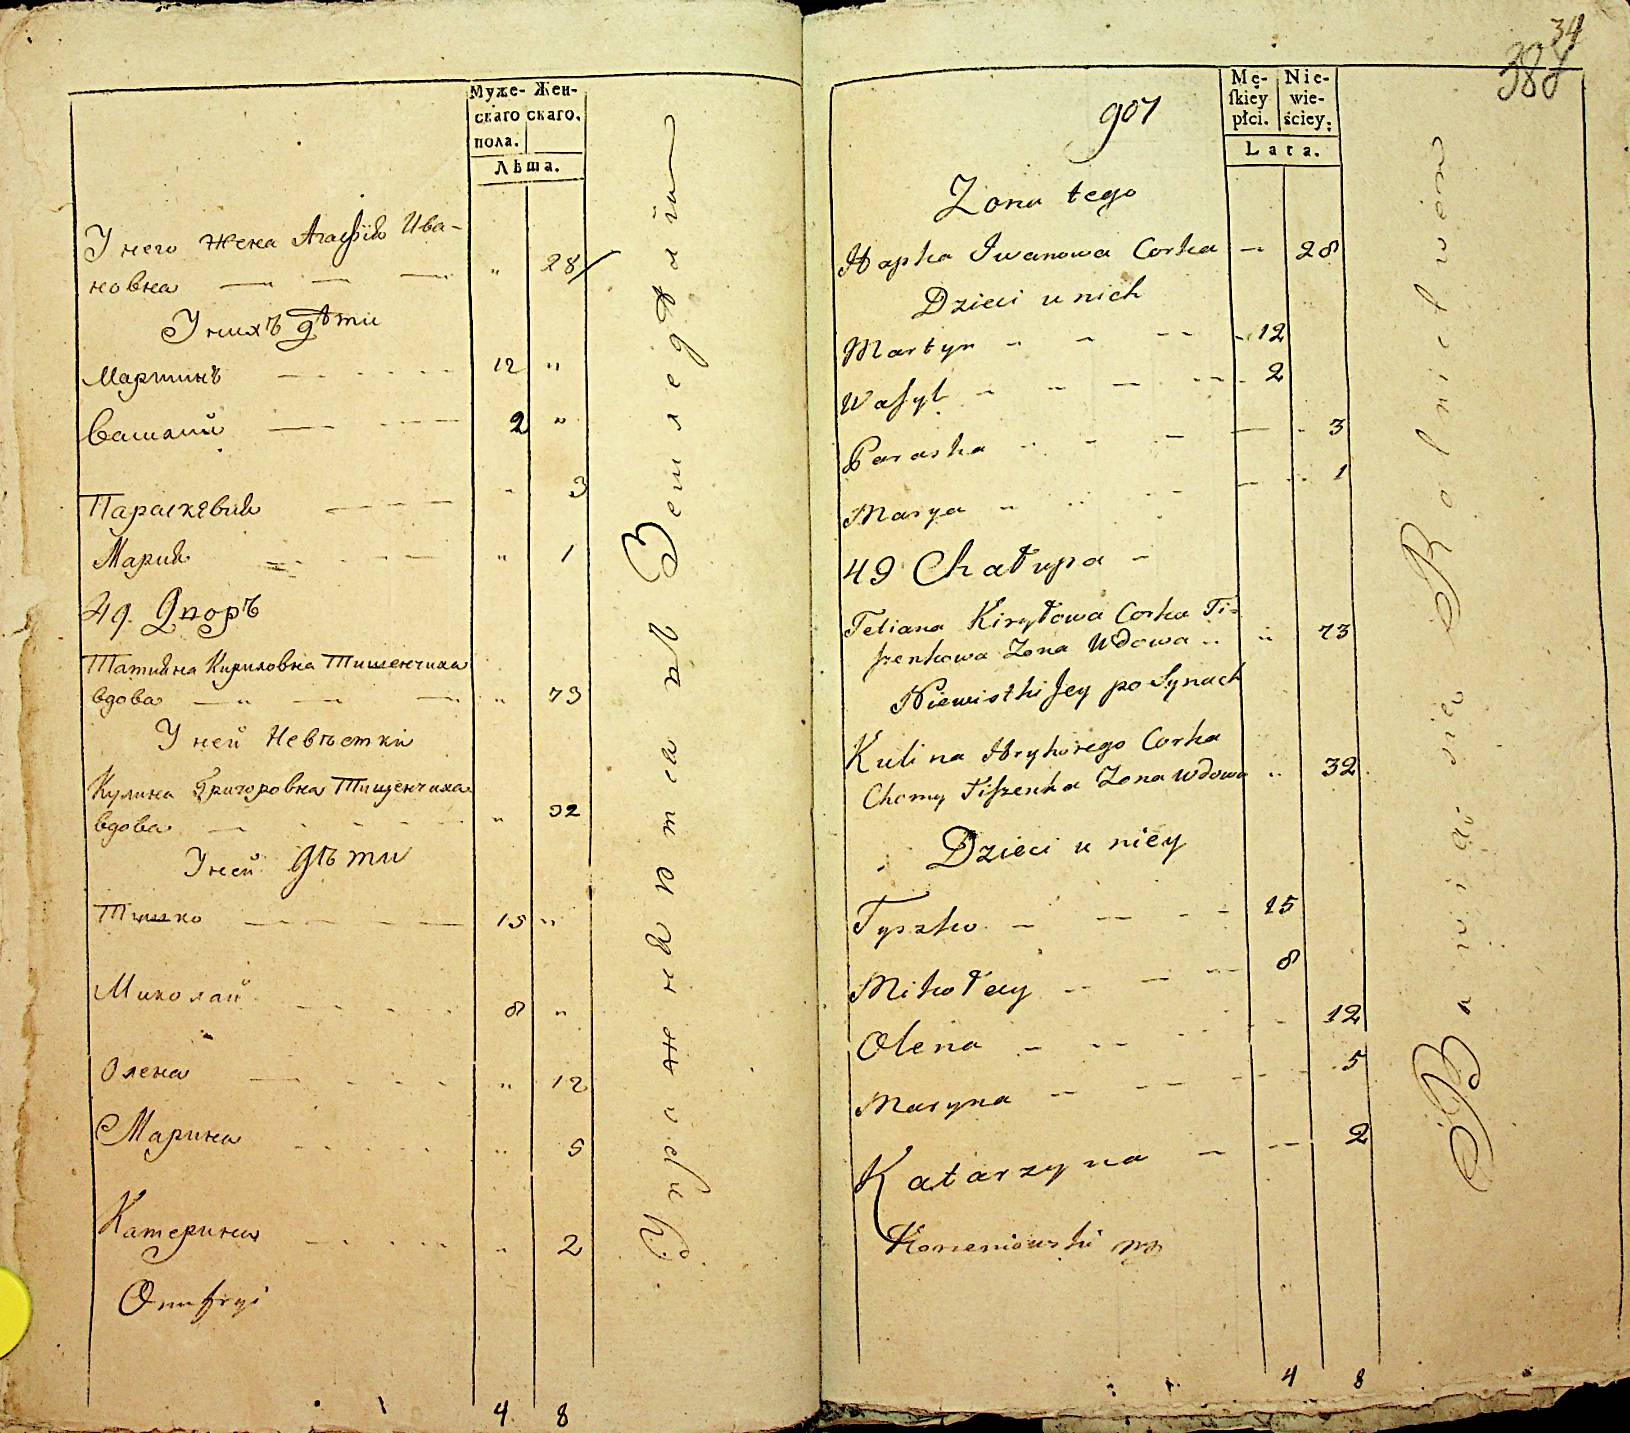 Муже- Жен-
скаго скаго.
пола.
Лѣта.
У него жена Агафія Ива-
новна " 28
У нихъ дѣти
Мартинъ 12 "
Василий 2 "
Параскевия " 3
Мария " 1
49. Дворъ
Татияна Кириловна Тишенчиха
вдова " 73
У ней Невѣстки
Кулина Григоровна Тищенчиха
вдова " 32
У ней дѣти
Тишко 15 "
Миколай 8 "
Олена " 12
Марина " 5
Катерина " 2
Onufryi
4 8
Упражняются въ Земледѣлии
34
388
907
Mę- Nie-
ſkiey wie-
płci. ściey.
Lata.
Zona tego
Hapka Iwanowa Corka 28
Dzieci u nich
Martyn 12
Waſyl 2
Paraska 3
Marya 1
49 Chałupa
Tetiana Kiryłowa Corka Ti-
ſzenkowa Zona Wdowa " 73
Niewistki Jey po Synach
Kulina Hryhorego Corka
Chomy Tiſzenka Zona wdowa " 32
Dzieci u niey
Tyszko 15
Mikołay 8
Olena 12
Maryna 5
Katarzyna 2
Korzeniowski mp
4 8
Bawią się Rolnictwem